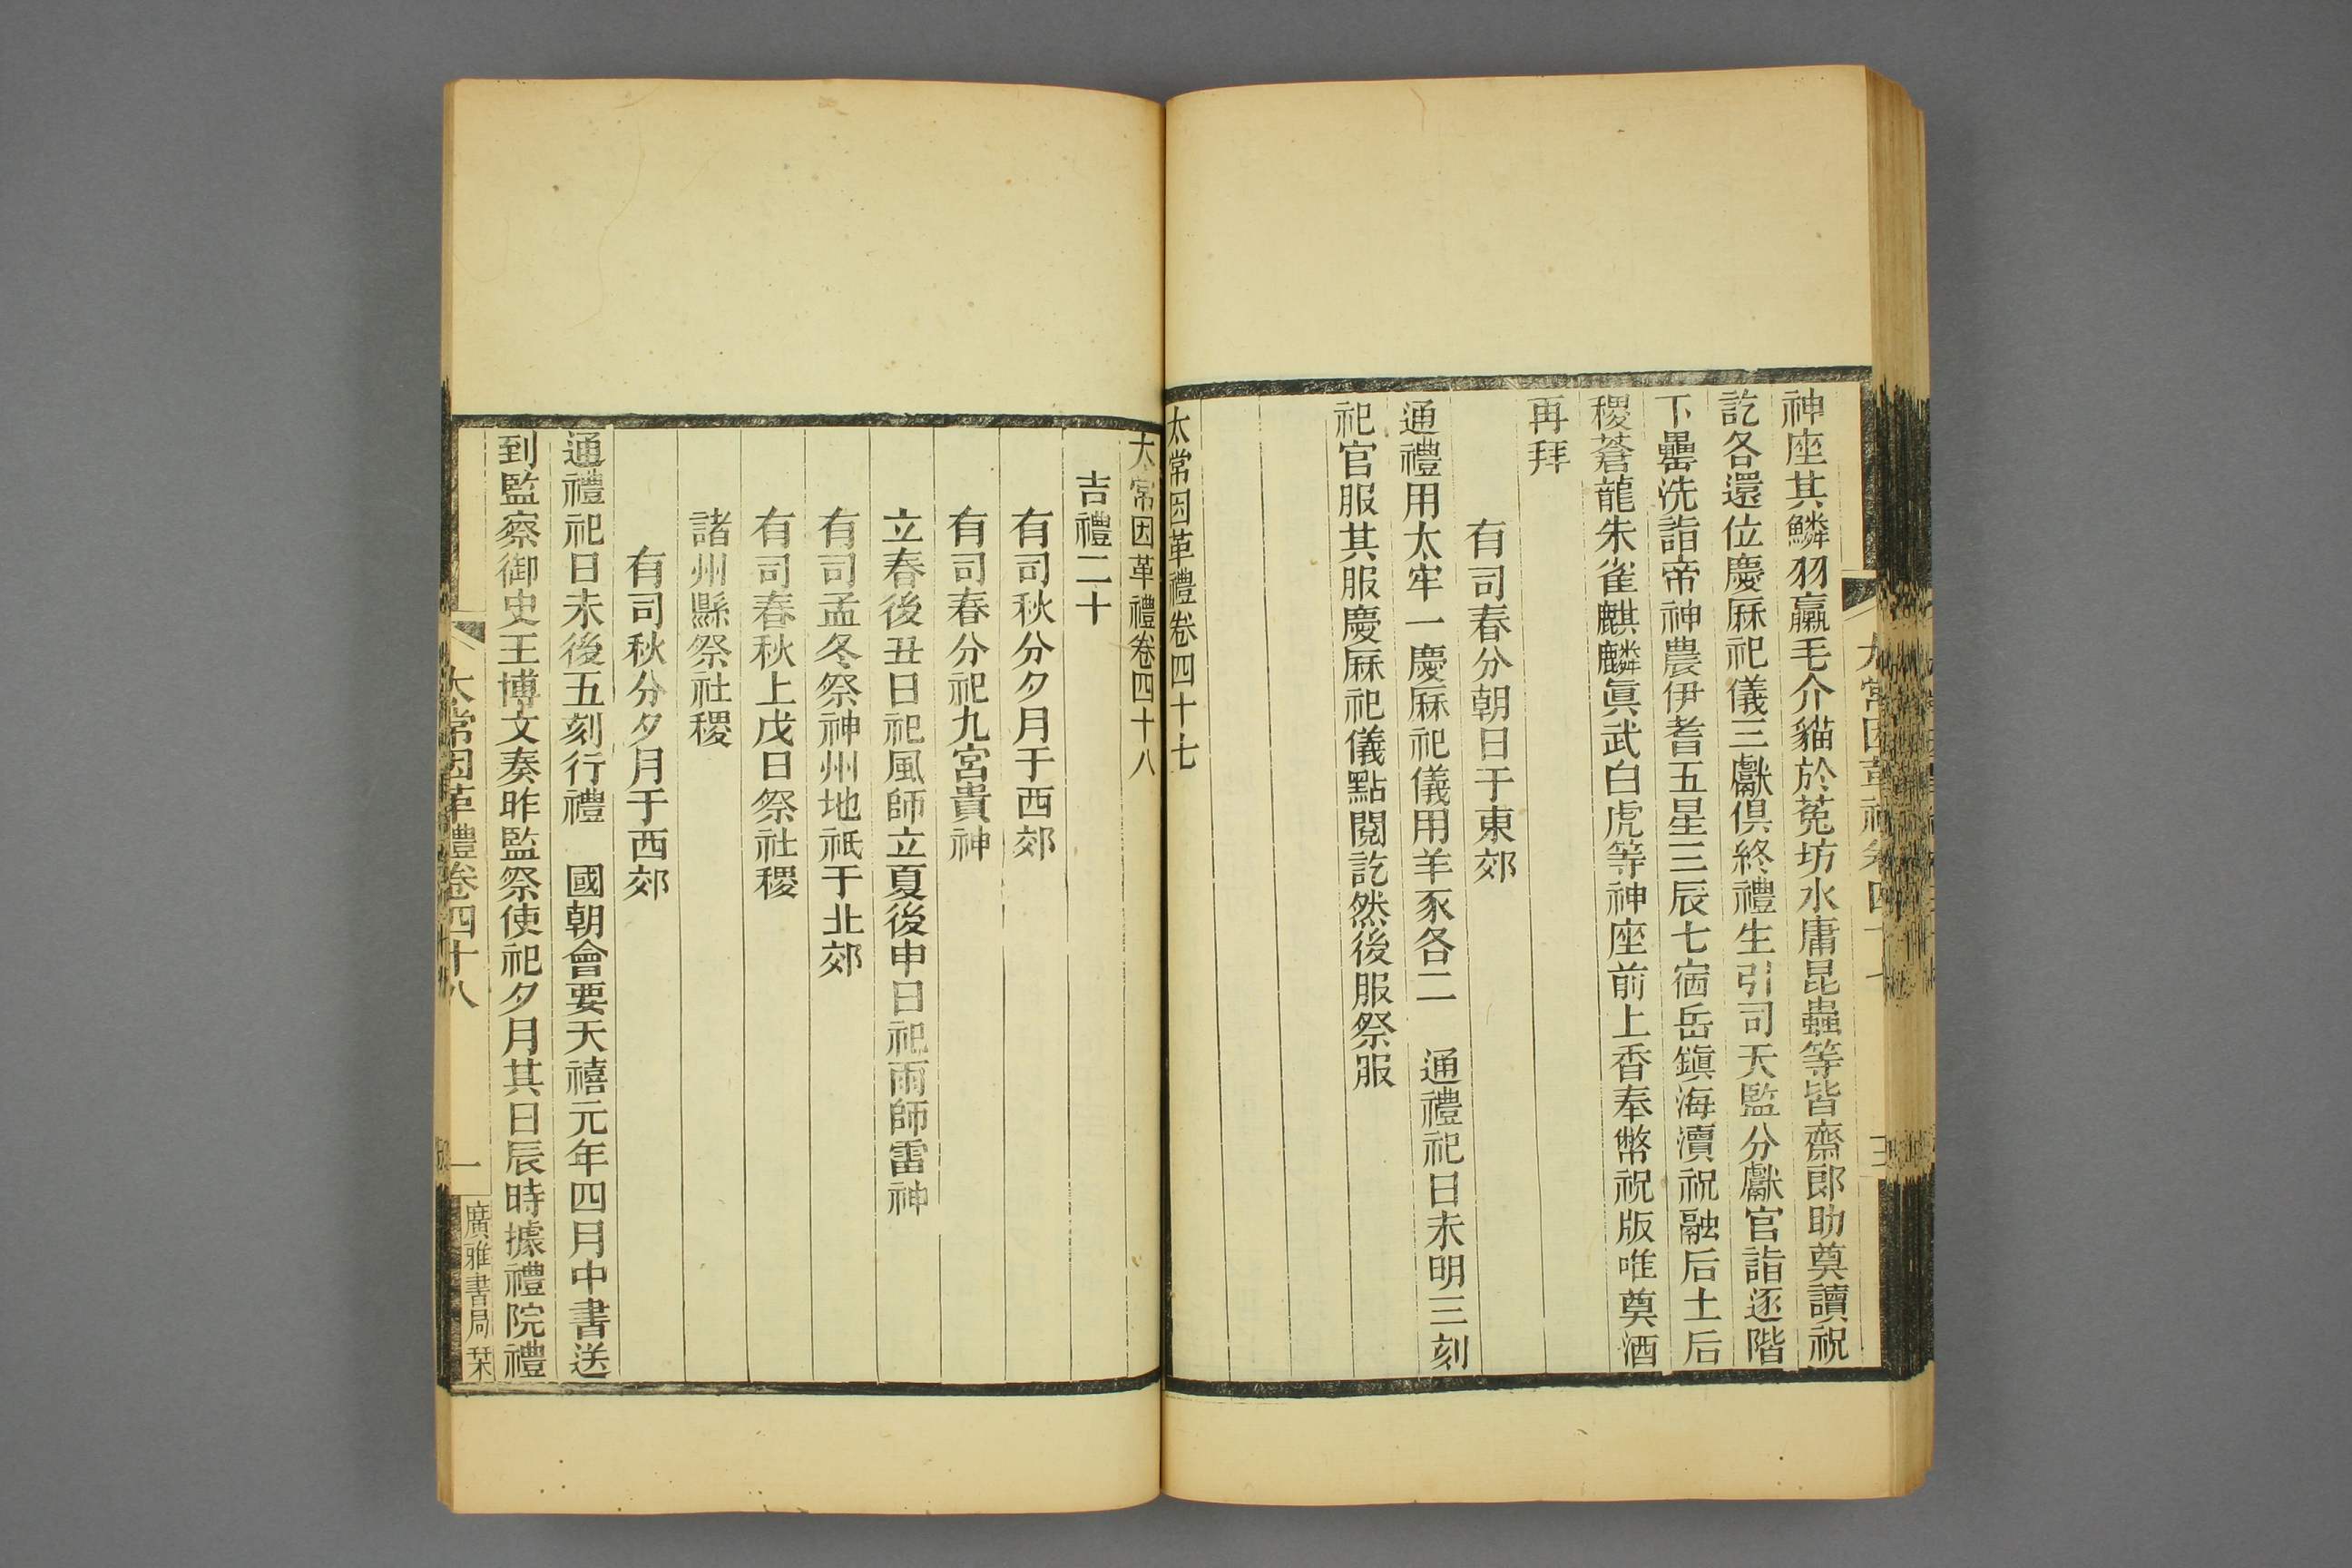 神座其鱗羽臝毛介貓於菟坊水庸昆蟲等皆齋郎助奠讀祝
訖各還位慶厤祀儀三獻俱終禮生引司天監分獻官詣逐階
下罍洗詣帝神農伊耆五星三辰七宿岳鎭海瀆祝融后土后
稷蒼龍朱雀麒麟眞武白虎等神座前上香奉幣祝版唯奠酒
再拜
有司春分朝日于東郊
通禮用太牢一慶厤祀儀用羊豕各二　通禮祀日未明三刻
祀官服其服慶厤祀儀點閱訖然後服祭服
太常因革禮卷四十七
太常因革禮卷四十八
吉禮二十
有司秋分夕月于西郊
有司春分祀九宮貴神
立春後丑日祀風師立夏後申日祀雨師雷神
有司孟冬祭神州地祇于北郊
有司春秋上戊日祭社稷
諸州縣祭社稷
有司秋分夕月于西郊
通禮祀日未後五刻行禮　國朝會要天禧元年四月中書送
到監察御史王博文奏昨監祭使祀夕月其日辰時據禮院禮
太常因革禮卷四十八
一
廣雅書局栞